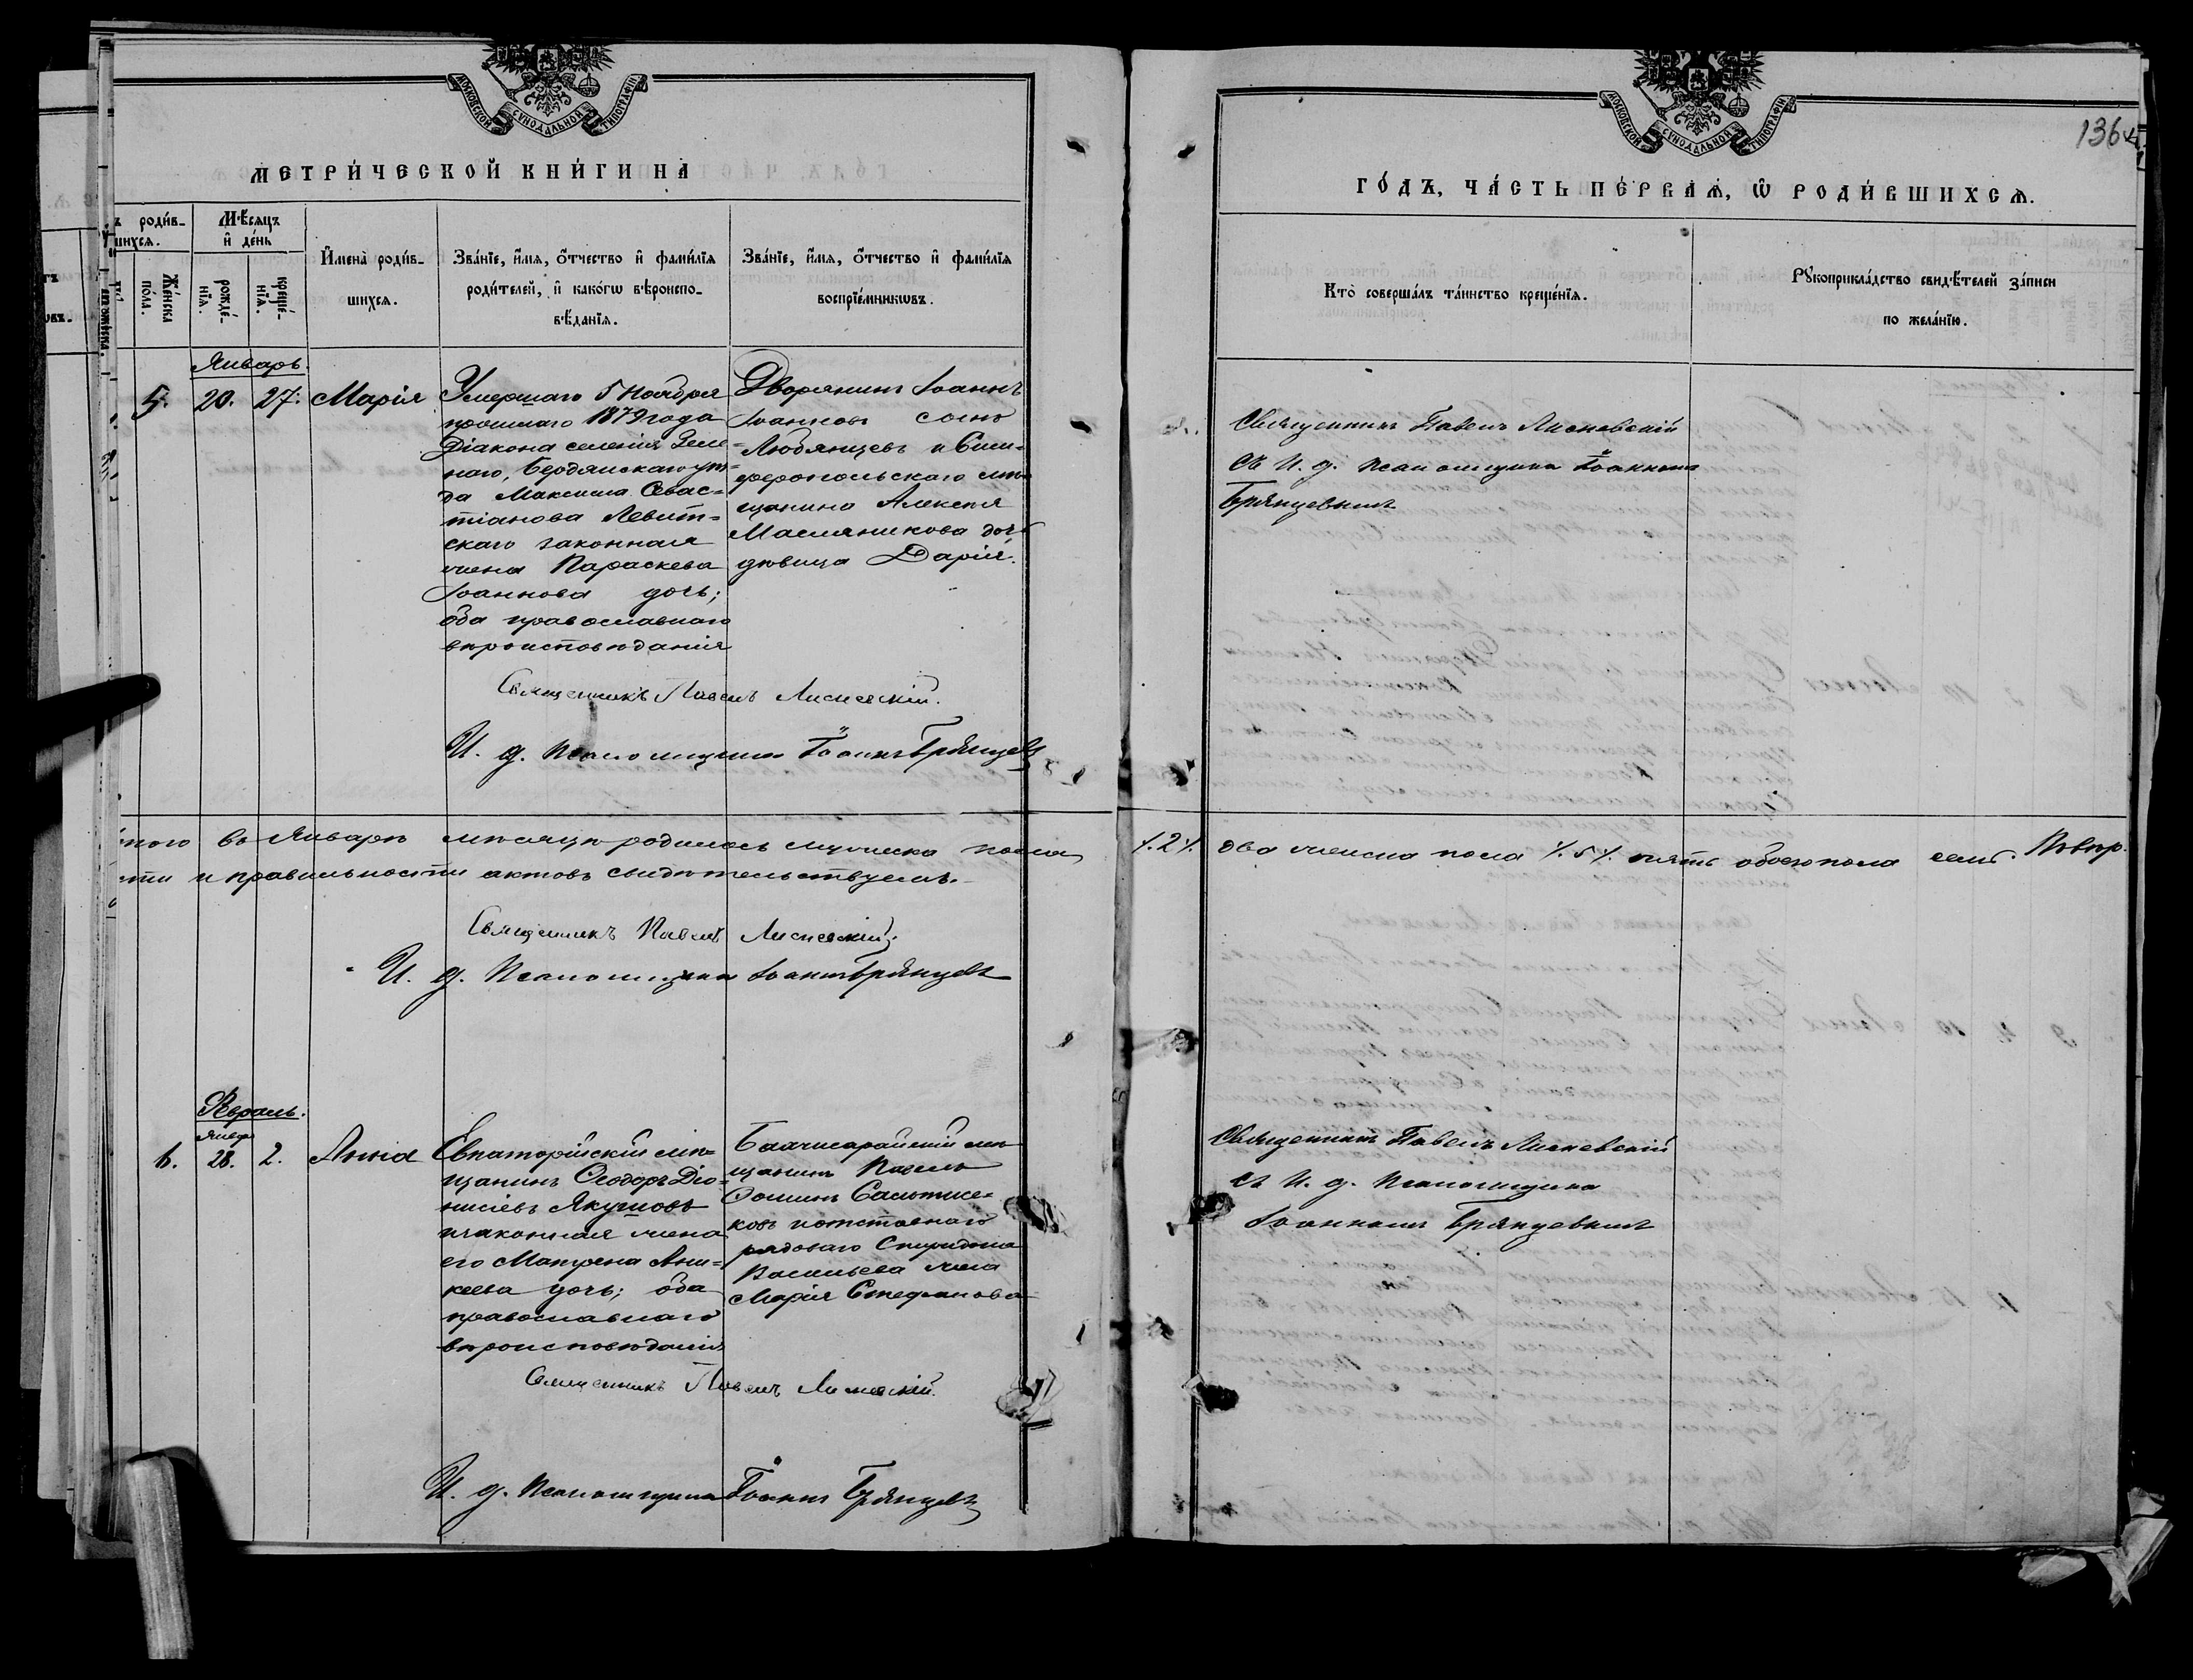 МОСКОВСКОЙ СѴНОДАЛЬНОЙ ТИПОГРАФІИ
МЕТРИ́ЧЕСКОЙ КНИ́ГИ НА
ъ роди́в-
шихся.
Мѣ́сяцъ
и҆ де́нь
Же́нска
по́ла.
рожде́-
нїѧ.
креще́-
нїѧ.
И҆мена̀ роди́в-
шихся.
Зва́нїе, и҆́мѧ, ѻ҆́тчество и҆ фами́лїѧ
роди́телей, и҆ како́гѡ вѣроиспо-
вѣ́данїѧ.
Зва́нїе, и҆́мѧ, ѻ҆́тчество и҆ фами́лїѧ
воспрїе́мникѡвъ.
Январь.
5. 20. 27. Марія
Умершаго 5 Ноября
прошлаго 1879 года
Діакона селенія Зеле-
наго, Бердянскаго уѣ-
да Максима Севас-
тіанова Левит-
скаго законная
жена Параскева
Іоаннова дочь;
оба православнаго
вѣроисповѣданія
Дворянинъ Іоаннъ
Іоанновъ сынъ
Любянцевъ и Сим-
феропольскаго мѣ-
щанина Алексѣя
Масляникова дочь
дѣвица Дарія.
Священникъ Павелъ Лисневскій.
И. д. Псаломщика Іоаннъ Брянцевъ
ного въ Январѣ мѣсяцѣ родилось мужеска пола
сти и правильности актовъ свидѣтельствуемъ.
Священникъ Павелъ Лисневскій.
И. д. Псаломщика Іоаннъ Брянцевъ
Февраль.
Январ
6. 28. 2. Анна
Евпаторійскій мѣ-
щанинъ Ѳеодоръ Діо-
нисіевъ Якушовъ
и законная жена
его Матрена Ани-
кеева дочь; оба
православнаго
вѣроисповѣданія
Бахчисарайскій мѣ-
щанинъ Павелъ
Ѳоминъ Сальтисе-
ковъ и отставнаго
рядоваго Спиридона
Васильева жена
Марія Стефанова
Священникъ Павелъ Лисневскій.
И. д. Псаломщика Іоаннъ Брянцевъ
МОСКОВСКОЙ СѴНОДАЛЬНОЙ ТИПОГРАФІИ
136
ГО́ДЪ, ЧА́СТЬ ПЕ́РВАѦ, Ѡ҆ РОДИ́ВШИХСѦ.
Кто̀ соверша́лъ та́инство креще́нїѧ.
Рꙋкоприкла́дство свидѣ́телей за́писи
по жела́нїю.
Священникъ Павелъ Лисневскій
съ И. д. Псаломщика Іоанномъ
Брянцевымъ
٪2٪ два женска пола ٪5٪ пять обоего пола семь. Вѣвѣр.
Священникъ Павелъ Лисневскій
съ И. д. Псаломщика
Іоанномъ Брянцевымъ